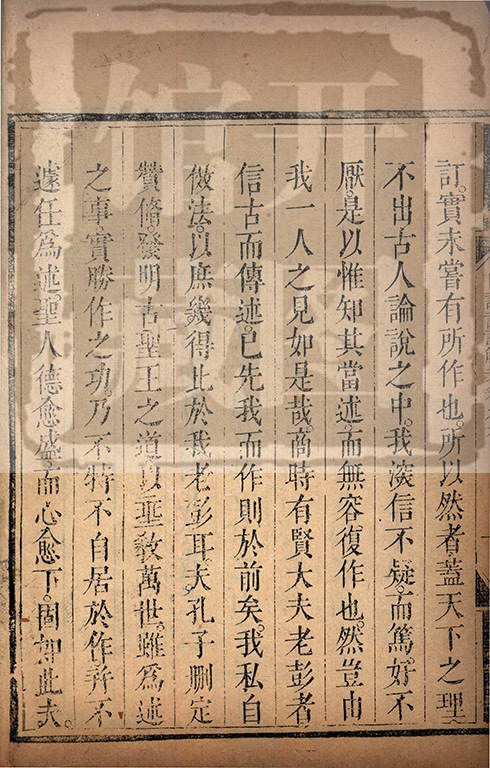 訂。實未嘗有所作也。所以然者。蓋天下之理
不出古人論說之中。我深信不疑。而篤好不
厭。是以惟知其當述。而無容復作也。然豈由
我一人之見如是哉。商時有賢大夫老彭者
信古而傳述。已先我而作則於前矣。我私自
倣法。以庶幾得比於我老彭耳。夫孔子刪定
贊脩。發明古聖王之道。以垂教萬世。雖爲述
之事。實勝作之功。乃不特不自居於作。幷不
遽任爲述。聖人德愈盛。而心愈下。固如此夫。